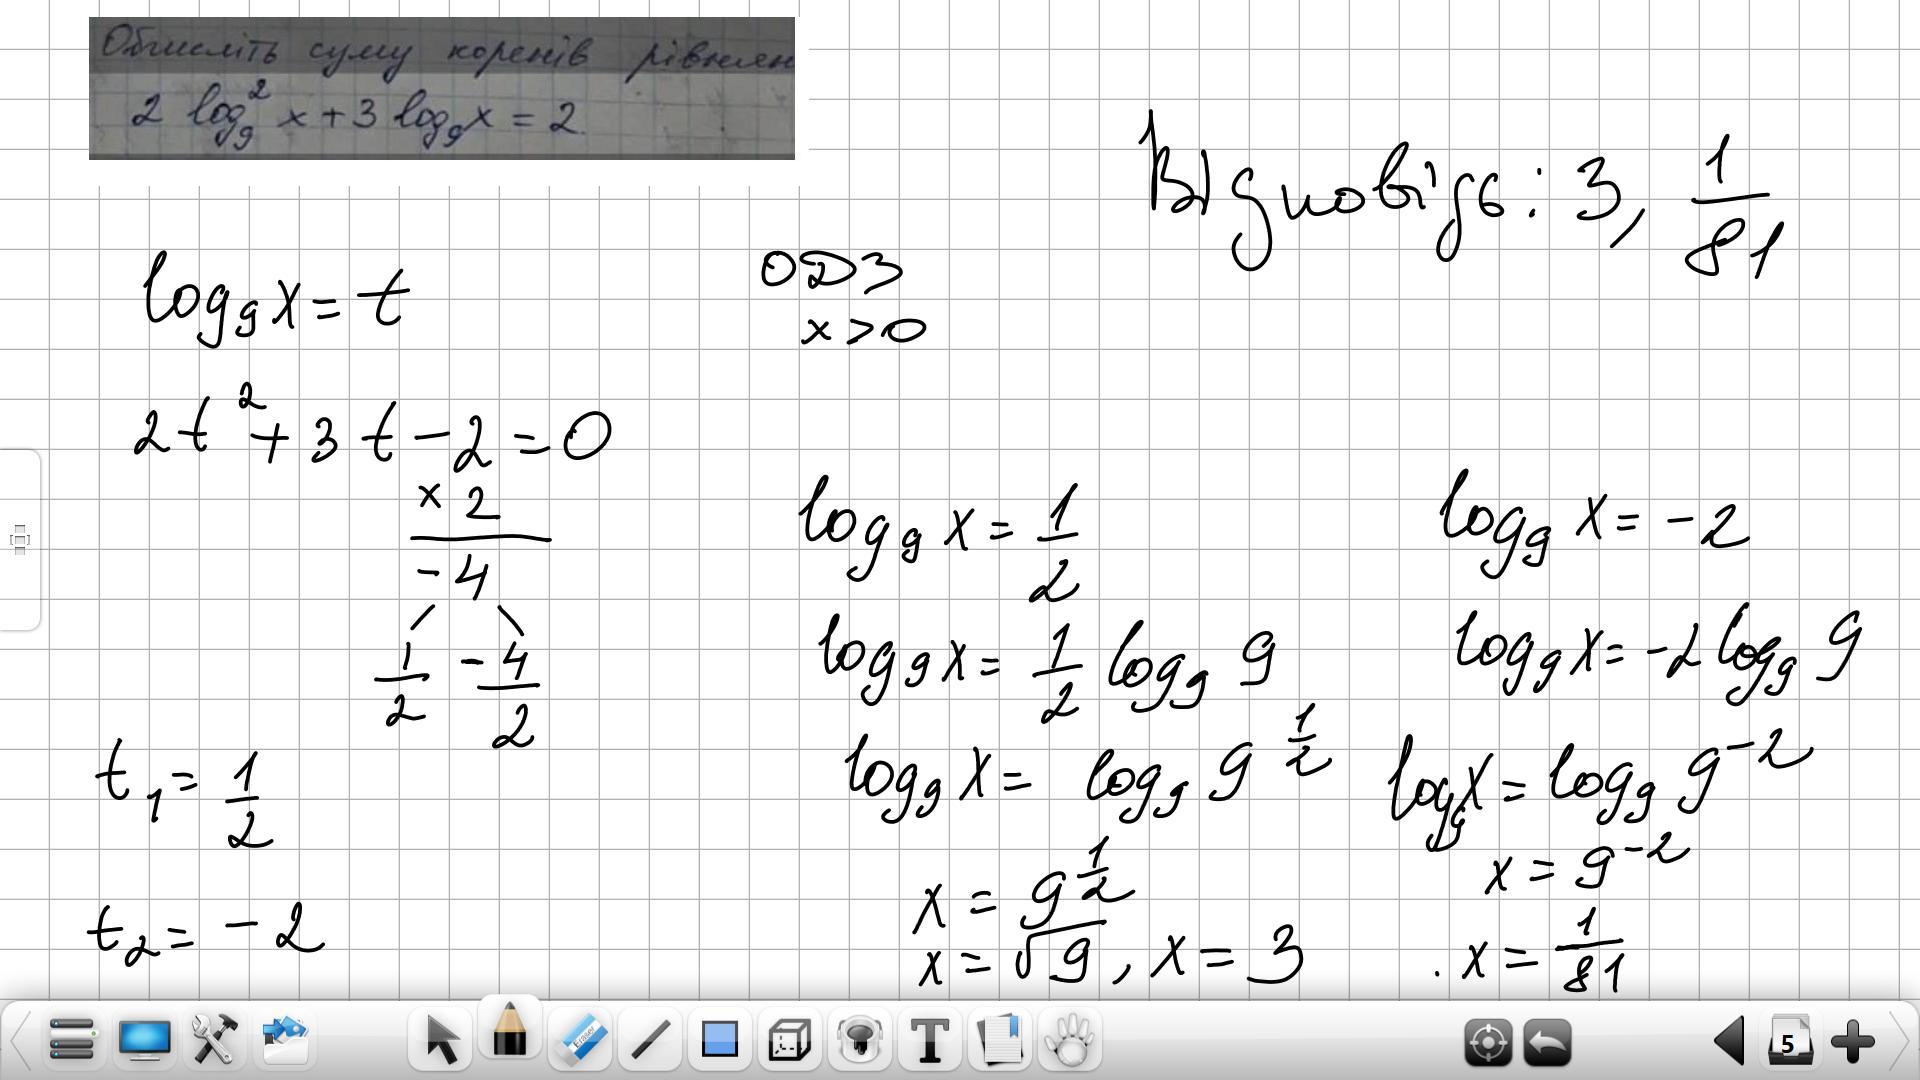 Обчисліть суму коренів рівнян
2 log₉² x + 3 log₉ x = 2
Відповідь: 3, 1/81
log₉ x = t
ОДЗ
x > 0
2t² + 3t - 2 = 0
× 2
-4
1/2 -4/2
t₁ = 1/2
t₂ = -2
log₉ x = 1/2
log₉ x = 1/2 log₉ 9
log₉ x = log₉ 9^(1/2)
x = 9^(1/2)
x = √9, x = 3
log₉ x = -2
log₉ x = -2 log₉ 9
log₉ x = log₉ 9⁻²
x = 9⁻²
x = 1/81
Eraser
T
5